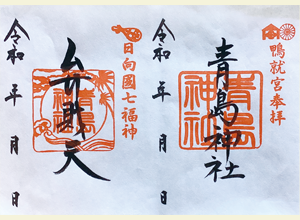 鴨就宮奉拝
青島神社
青島神社
令和 年 月 日
日向國七福神
弁財天
青島神社
令和 年 月 日